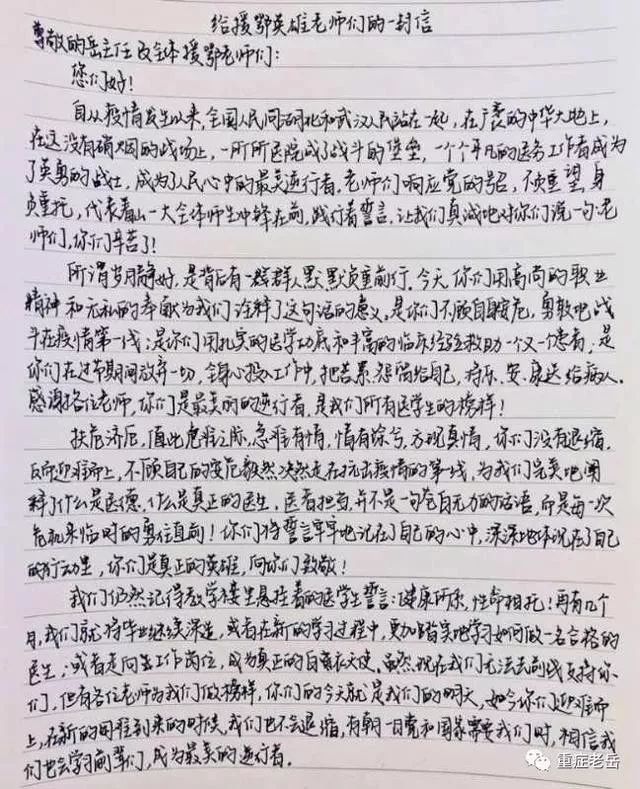 给援鄂英雄老师们的一封信
尊敬的岳主任及全体援鄂老师们:
您们好!
自从疫情发生以来,全国人民同湖北和武汉人民站在一起,在广袤的中华大地上,
在这没有硝烟的战场上,一所所医院成了战斗的堡垒,一个个平凡的医务工作者成为
了英勇的战士,成为了人民心中的最美逆行者,老师们响应党的号召,不负重望,身
负重托,代表着山一大全体师生冲锋在前,践行着誓言,让我们真诚地对你们说一句:老
师们,你们辛苦了!
所谓岁月静好,是背后有一群群人默默负重前行。今天,你们用高尚的职业
精神和无私的奉献为我们诠释了这句话的意义,是你们不顾自身安危,勇敢地战
斗在疫情第一线;是你们用扎实的医学功底和丰富的临床经验救助一个又一个患者,是
你们在过年期间放弃一切,全身心投入工作中,把苦、累、怨留给自己,将乐、安、康送给病人。
感谢各位老师,你们是最美的的逆行者,是我们所有医学生的榜样!
扶危济厄,值此危难之际,急难有情,情有综兮,方现真情,你们没有退缩,
反而迎难而上,不顾自己的安危毅然决然走在抗击疫情的第一线,为我们完美地阐
释了什么是医德,什么是真正的医生,医者担当,并不是一句苍白无力的话语,而是每一次
危机来临时的勇往直前!你们将誓言牢牢地记在了自己的心中,深深地体现在了自己
的行动里,你们是真正的英雄,向你们致敬!
我们仍然记得教学楼里悬挂着的医学生誓言:健康所系,性命相托!再有几个
月,我们就将毕业继续深造,或者在新的学习过程中,更加踏实地学习如何做一名合格的
医生;或者走向工作岗位,成为真正的白衣天使,虽然现在我们无法去前线支持你
们,但有各位老师为我们做榜样,你们的今天就是我们的明天,如今你们迎难而
上,在新的困难到来的时候,我们也不会退缩,有朝一日党和国家需要我们时,相信我
们也会学习前辈们,成为最美的逆行者。
重症老岳